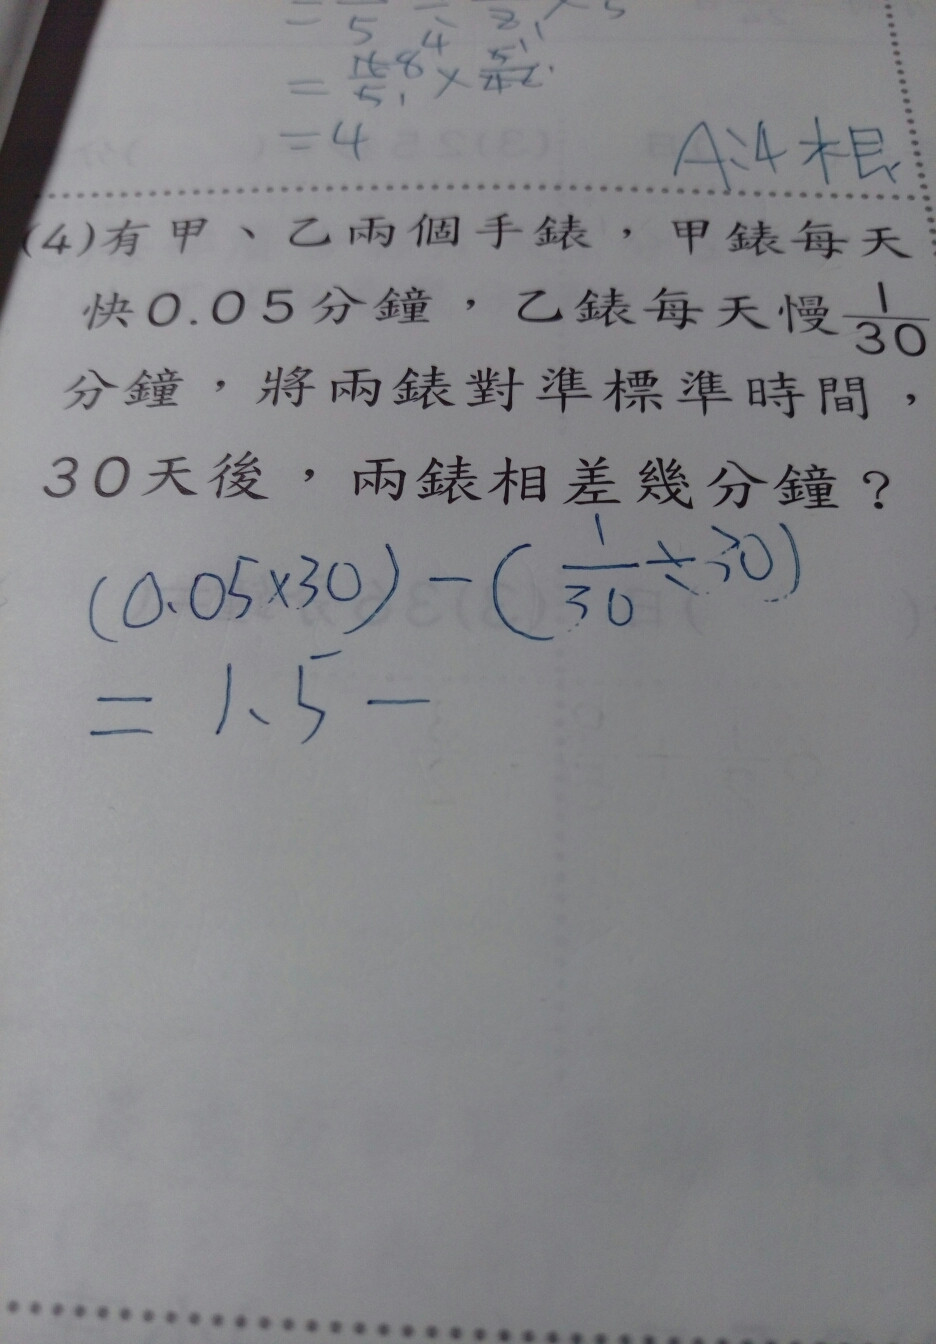 = 16/5 8 4 × 5/42
=4
A:4根
(4)有甲、乙兩個手錶，甲錶每天
快0.05分鐘，乙錶每天慢1/30
分鐘，將兩錶對準標準時間，
30天後，兩錶相差幾分鐘？
(0.05×30)-(1/30÷30)
=1.5-